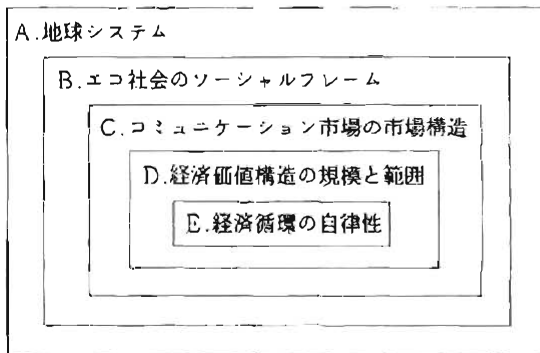 A.地球システム
B.エコ社会のソーシャルフレーム
C.コミュニケーション市場の市場構造
D.経済価値構造の規模と範囲
E.経済循環の自律性